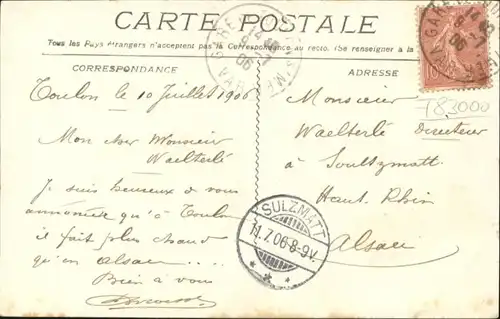 CARTE POSTALE
Tous les Pays étrangers n'acceptent pas la Correspondance au recto. (Se renseigner à la
CORRESPONDANCE
Toulon le 10 Juillet 1906
Mon cher Monsieur
Waelterlé
Je suis heureux de vous
annoncer qu'à Toulon
il fait plus chaud
qu'en alsace....
Bien à vous
ADRESSE
Monsieur
Waelterlé Directeur
à Soultzmatt
Haut Rhin
Alsace
183000
SULZMATT
11.7.06 8-9V.
GARE
VAR
06
10